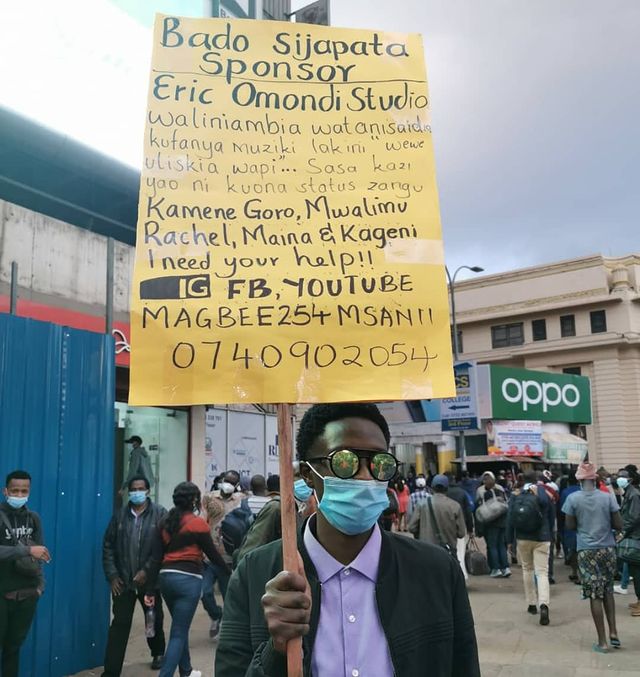 Bado Sijapata
Sponsor
Eric Omondi Studio
waliniambia watanisaidia
kufanya muziki lakini "wewe
uliskia wapi"... Sasa kazi
yao ni kuona status zangu
Kamene Goro, Mwalimu
Rachel, Maina & Kageni
I need your help!!
IG FB, YOUTUBE
MAGBEE254 MSANII
0740902054
oppo
COLLEGE